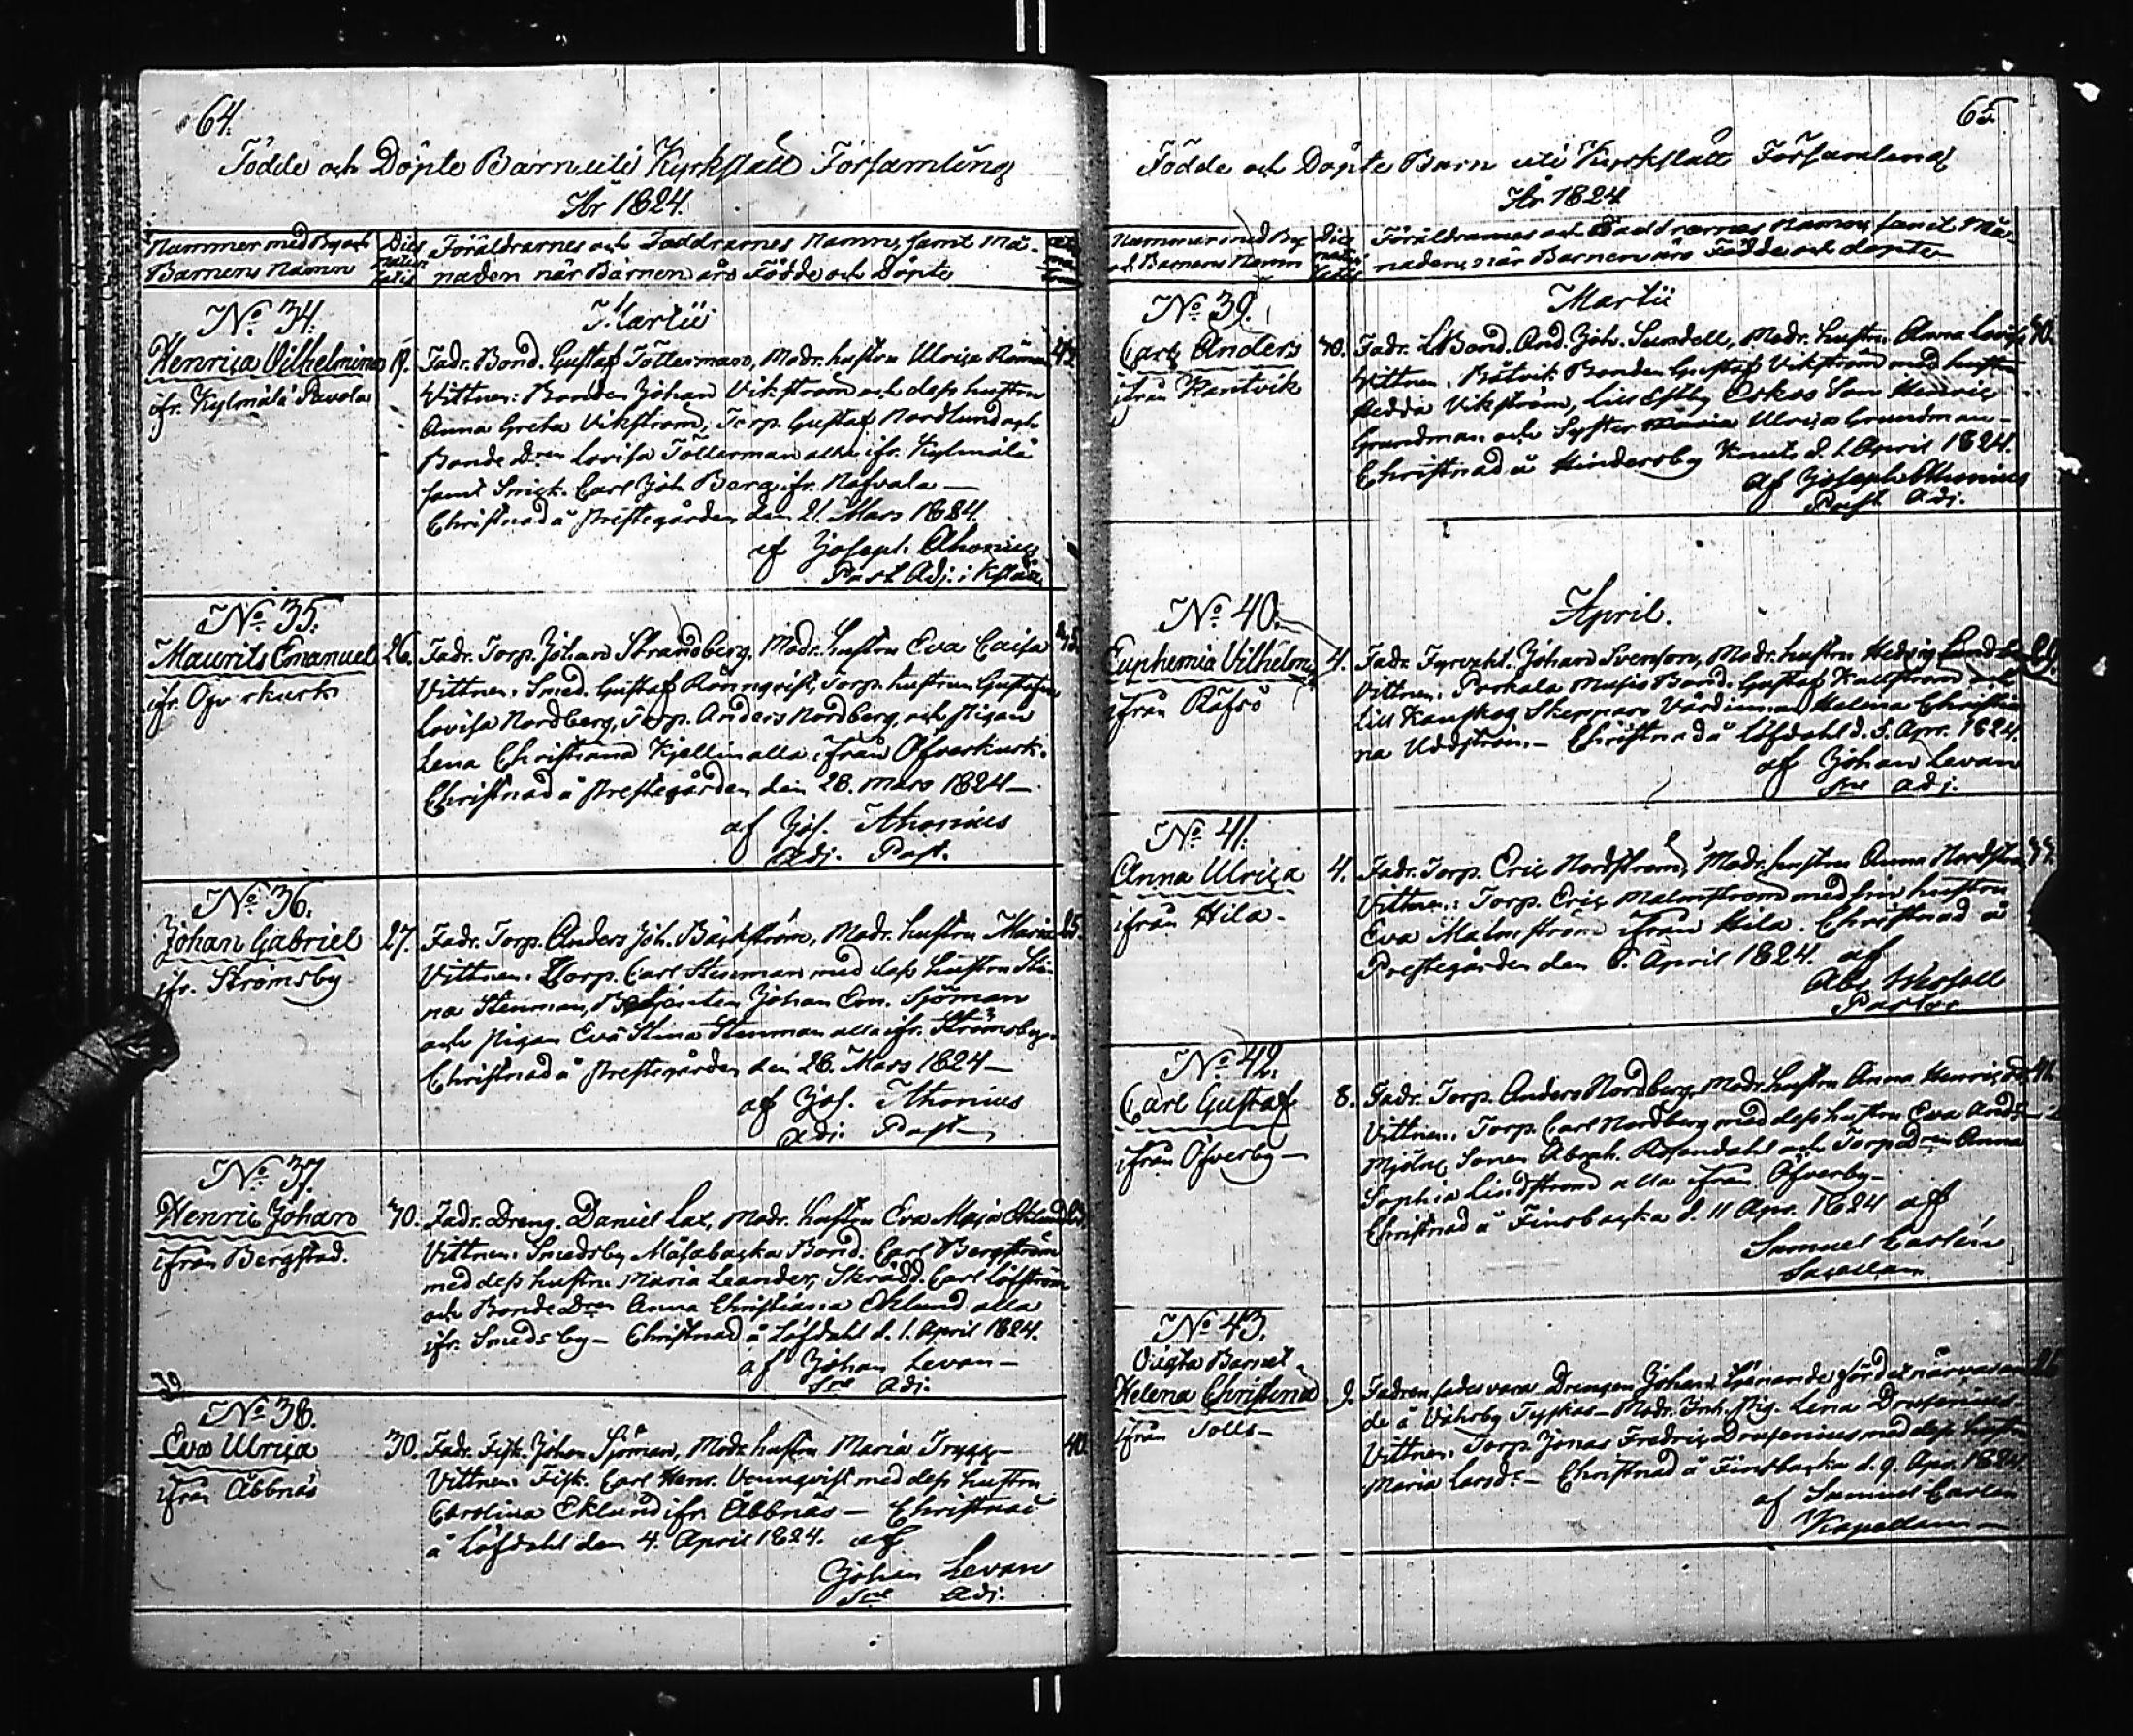 64.
Födde och Döpte Barn uti Kyrkslätt Församling
År 1824.
Nummer med By och
Barnens Namn
Dies
natali
tatis
Föräldrarnes och Faddrarnes Namn, samt Må-
naden när Barnen äro Födde och Döpte
No. 34.
Martii
Henrica Vilhelmina
ifr. Kylmälä Pavola
19.
Fadr. Bond. Gustaf Töttermann, Modr. hustru Ulrica
Vittnen: Bonden Johan Vikström och dess hustru
Anna Greta Vikström, Torp. Gustaf Nordlund och
Bonde Dren Lovisa Tötterman alla ifr. Kylmälä
samt Carl Joh. Berg ifr. Näfvala —
Christnad å Prestegården den 21. Mars 1824.
af Joseph Ahonius
Past. Adj. i Kslätt
No. 35.
Maurits Emanuel
26.
Fadr. Torp. Johan Strandberg, Modr. hustru Eva Caisa
Vittnen: Smed. Gustaf Rönnqvist, Torp. hustrun Gustafva
Lovisa Nordberg, Torp. Anders Nordberg, och Pigan
Lena Christiana Kjellin alla ifrån Öfverkurk.
Christnad å Prestegården den 28. Mars 1824 —
af Jos. Ahonius
Adj. Past.
No. 36.
Johan Gabriel
ifr. Strömsby
27.
Fadr. Torp. Anders Joh. Bäckström, Modr. hustru Maria 25.
Vittnen: Torp. Carl Stenman med dess hustru Sti-
na Stenman, Johan Em. Sjöman
och Pigan Eva Stina Stenman alla ifr. Strömsby.
Christnad å Prestegården den 28. Mars 1824 —
af Jos. Ahonius
Adj. Past.
No. 37.
Henric Johan
ifrån Bergstad.
30.
Fadr. Dreng. Daniel Lax, Modr. hustru Eva Maja Eklund
Vittnen: Smedsby Måsabacka Bond. Carl Bergström
med dess hustru Maria Leander, Skrädd. Carl Löfström
och Bonde Dren Anna Christiana Eklund alla
ifr. Smedsby — Christnad å Löfdahl d. 1. April 1824.
af Johan Levan —
Sne Adj.
No. 38.
Eva Ulrica
ifrån Åbbnäs
30.
Fadr. Fisk. Johan Sjöman, Modr. hustru Maria Trygg — 40.
Vittnen: Fisk. Carl Henr. med dess hustru
Carolina Eklund ifr. Åbbnäs — Christnad
å Löfdahl den 4. April 1824. af
Johan Levan
Sne Adj.
65
Födde och Döpte Barn uti Kyrkslätt Församling
År 1824
Nummer med By
och Barnens Namn
Föräldrarnes och Faddrarnes Namn, samt Må-
naden, när Barnen äro Födde och döpte
Martii
No. 39.
Carl Anders
ifrån Kantvik
30.
Fadr. LBond. And. Joh. Sundell, Modr. hustru Anna Lovisa 30.
Vittnen: Båtvik Bonden Gustaf Vikström med hustru
Hedda Vikström, Lill Estby Eskas Son Henric
Grundman och Syster Ulrica Grundman —
Christnad å Hindersby Knuts d. 1. April 1824.
af Joseph Ahonius
Past. Adj.
No. 40.
April.
Euphemia Vilhelmina
ifrån Räfsö
4.
Fadr. Fyrvakt. Johan Svenson, Modr. hustru Hedvig 29.
Vittnen: Porkala Musis Bond. Gustaf Kallström
Lill Kanskog Skeppars Värdinnan Helena Christi-
na Uddström. — Christnad å Löfdahl d. 5. Apr. 1824.
af Johan Levan
Sne Adj.
No. 41.
Anna Ulrica
ifrån Hila.
4.
Fadr. Torp. Eric Nordström, Modr. hustru Anna Nordström
Vittnen: Torp. Eric Malmström med sin hustru
Eva Malmström ifrån Hila. Christnad å
Prestegården den 6. April 1824. af
Pastor
No. 42.
Carl Gustaf
ifrån Öfverby —
8.
Fadr. Torp. Anders Nordberg, Modr. hustru Anna Henricsd. 41.
Vittnen: Torp. Carl Nordberg med dess hustru Eva Andsd.
Sonen Abrah. Rosendahl och Torp. Dren Anna
Sophia Lindström alla ifrån Öfverby —
Christnad å Finsbacka d. 11 Apr. 1824 af
Samuel Carlén
Sacellan
No. 43.
Oägta Barnet
Helena Christina
ifrån Tolls —
9.
Fadren sades vara Drengen Johan tjenande för det närvaran-
de å Vohrby — Modr. Inh. Pig. Lena Drufenius.
Vittnen: Torp. Jonas Fredric Drufenius med dess hustru
Maria Larsd. — Christnad å Finsbacka d. 9. Apr. 1824.
af Samuel Carlén
Kapellan —